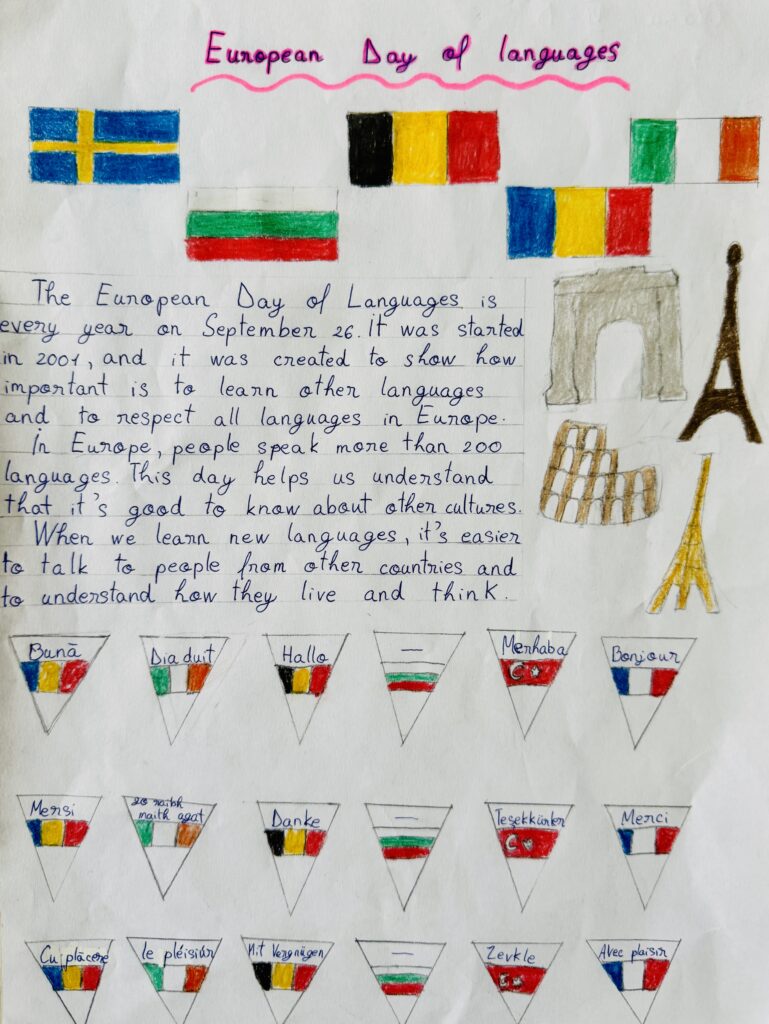 European Day of languages
The European Day of Languages is
every year on September 26. It was started
in 2001, and it was created to show how
important is to learn other languages
and to respect all languages in Europe.
In Europe, people speak more than 200
languages. This day helps us understand
that it's good to know about other cultures.
When we learn new languages, it's easier
to talk to people from other countries and
to understand how they live and think.
Bună Dia duit Hallo — Merhaba Bonjour
Mersi raibh Danke — Teşekkürler Merci
maith agat
Cu plăcere le pléisiúr Mit Vergnügen — Zevkle Avec plaisir